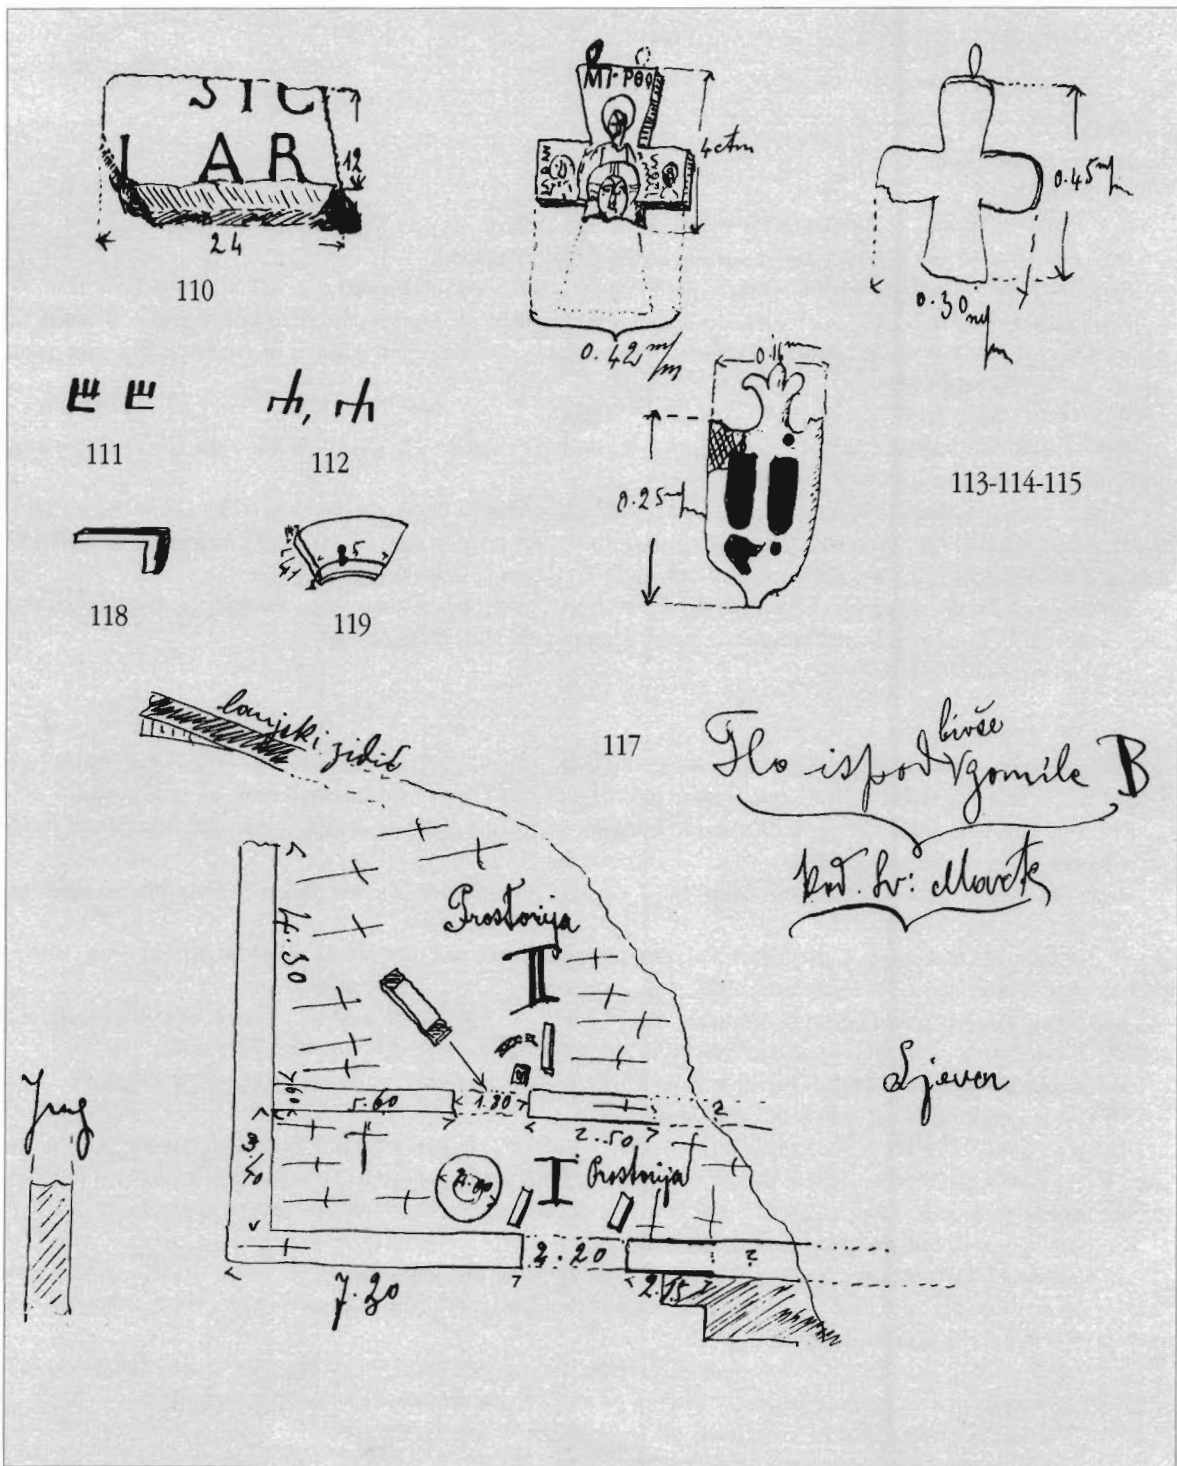 STC
I AR
12
24
110
MI-PΘ
4 ctm
0.42 m/m
0.45 m/m
0.30 m/m
111
112
0.16 m
0.25 m/m
113-114-115
118
85
119
lanjski zidić
117
Tlo ispod bivše gomile B
kod. Sv: Marte
Prostorija
II
4.30
Sjever
Jug
60
5.60
1.80
2.50
?
3/40
I
Prostorija
2.20
?
7.20
2.15